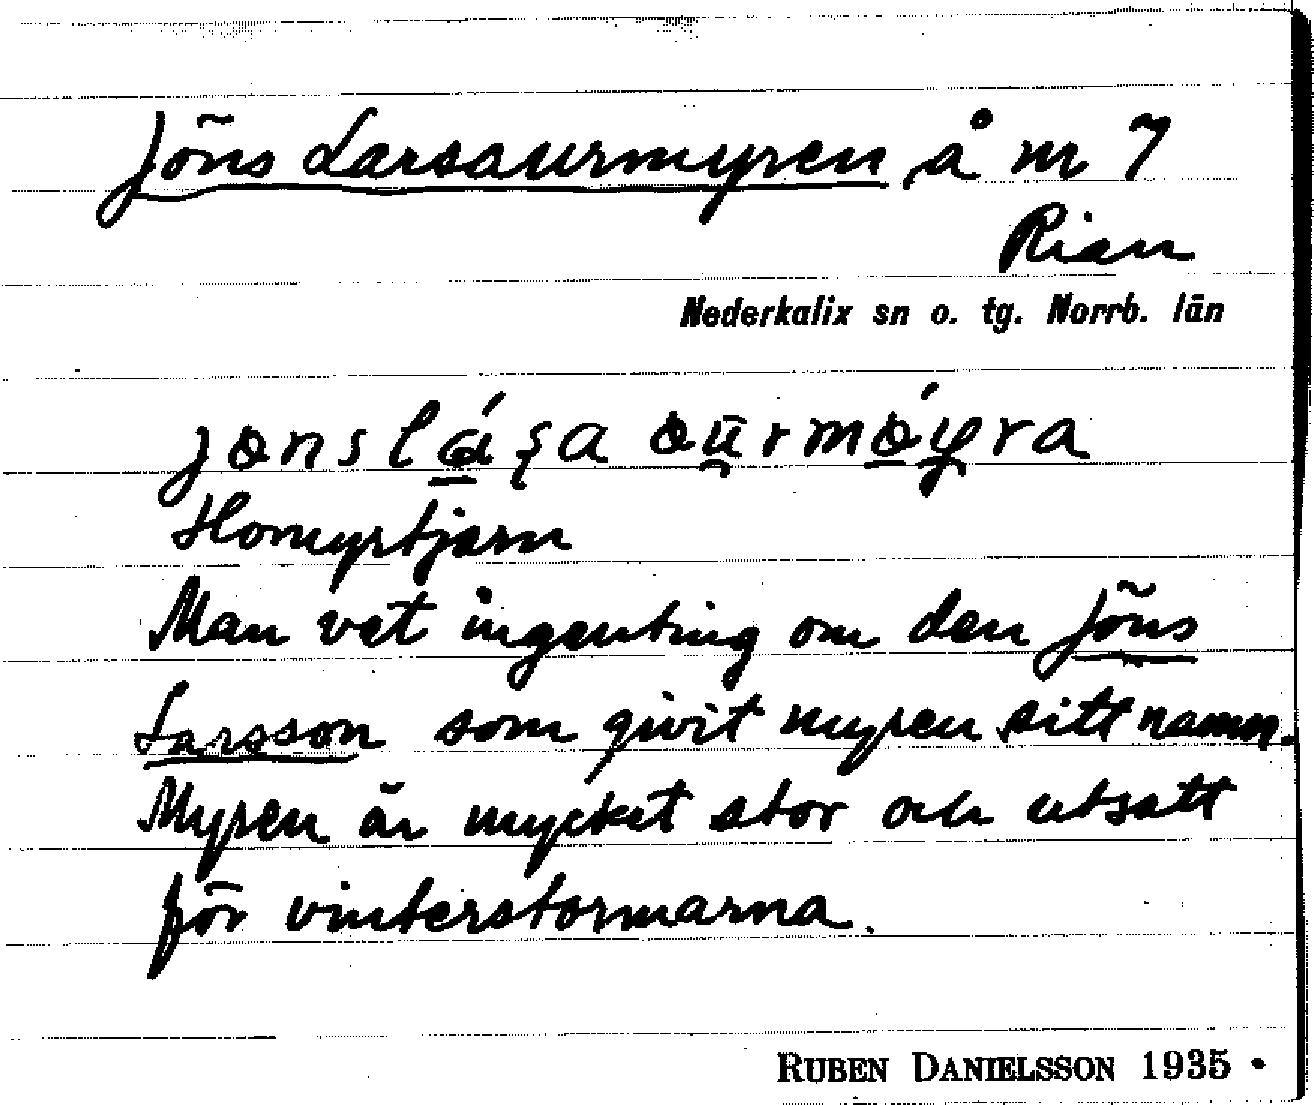 Jöns Larsaurmyren å m 7
Rian
Nederkalix sn o. tg. Norrb. län
Homyrtjärn
Man vet ingenting om den Jöns
Larsson som givit myren sitt namn.
Myren är mycket stor och utsatt
för vinterstormarna.
RUBEN DANIELSSON 1935